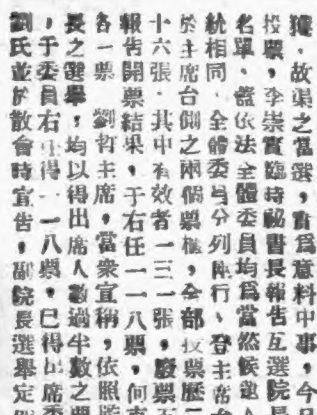 獲，故渠之當選，實爲意料中事，今日
投票，李崇實臨時秘書長報告互選院長
名單，依法全體委員均爲當然候選人
統相同，全體委員分列兩行，登主席台
於主席台側之兩個票櫃，全部投票歷二
十六張，其中有效者一三一張，廢票五
報告開票結果，于右任一一八票，何克
各一票，劉哲主席，當衆宣稱，依照監
長之選舉，均以得出席人數過半數之票
，于委員右任得一一八票，已得出席委
劉氏並於散會時宣告，副院長選舉定